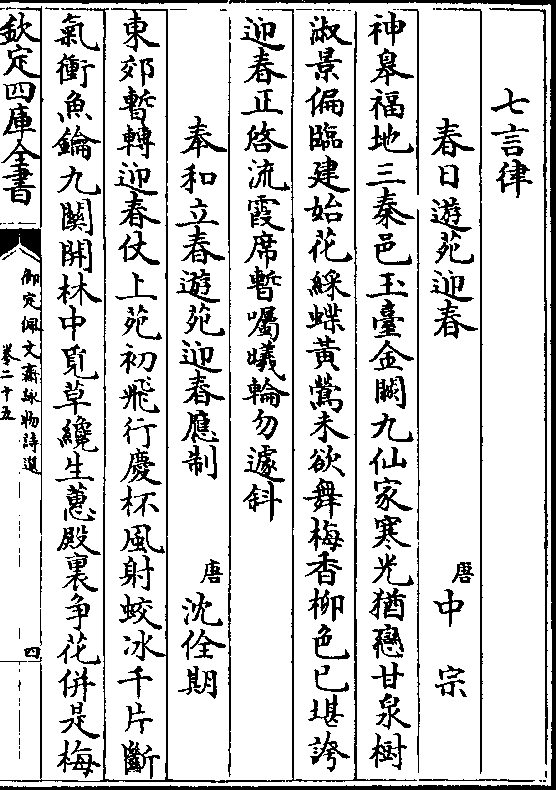 七言律
春日遊苑迎春
唐中宗
神臯福地三秦邑玉臺金闕九仙家寒光猶戀甘泉樹
淑景偏臨建始花綵蝶黃鶯未欲舞梅香柳色已堪誇
迎春正啓流霞席暫囑曦輪勿遽斜
奉和立春遊苑迎春應制
唐沈佺期
東郊暫轉迎春仗上苑初飛行慶杯風射蛟冰千片斷
氣衝魚鑰九關開林中覓草纔生蕙殿裏爭花併是梅
欽定四庫全書
御定佩文齋詠物詩選
卷二十五
四